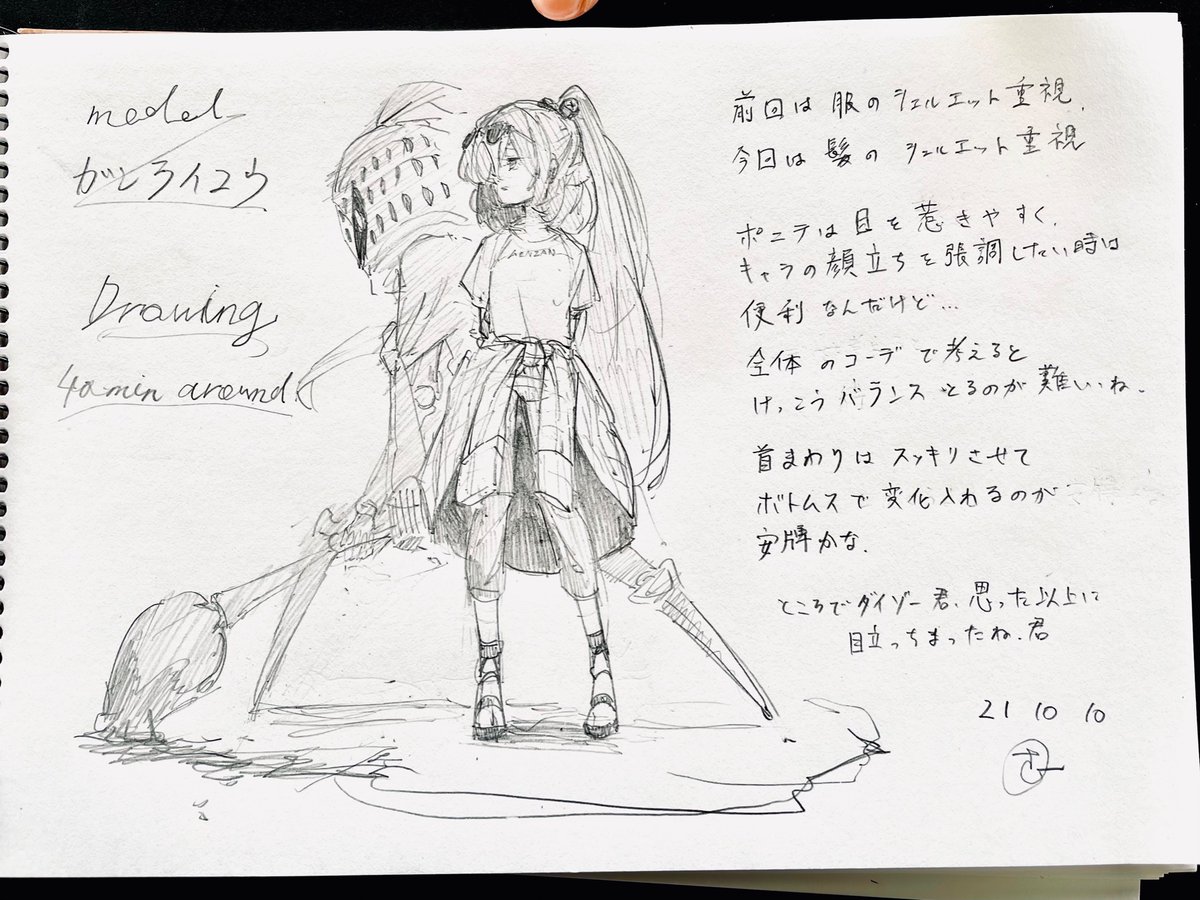 model
がとうイユウ
Drawing
40min around.
AENZAN
前回は服のシェルエット重視.
今日は髪のシェルエット重視
ポニテは目を惹きやすく.
キャラの顔立ちを張調したい時は
便利なんだけど…
全体のコーデで考えると
けっこうバランスとるのが難しいね.
首まわりはスッキリさせて
ボトムスで変化入れるのが
安牌かな.
ところでダイゾー君、思った以上に
目立っちまったね.君
21 10 10
さー